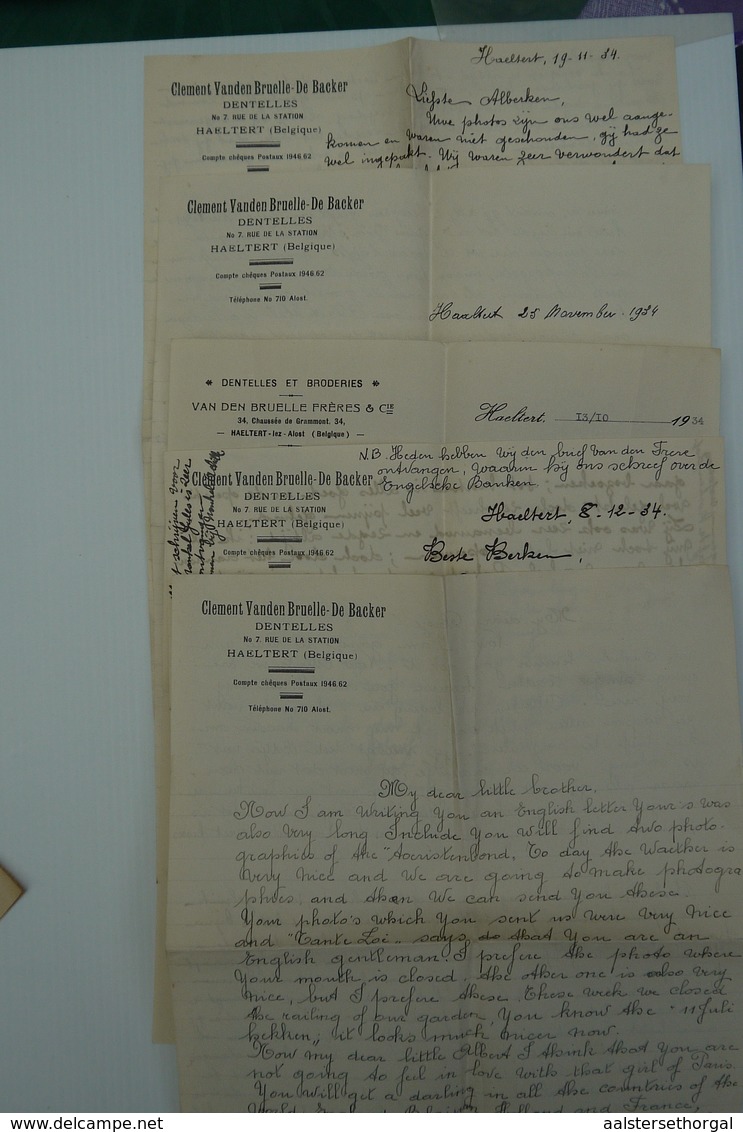 Haeltert, 19-11-34.
Clement Vanden Bruelle-De Backer
DENTELLES
No 7. RUE DE LA STATION
HAELTERT (Belgique)
Compte chêques Postaux 1946.62
Liefste Alberken,
Uwe photos zijn ons wel aange-
komen en waren niet geschonden, gij had ze
wel ingepakt. Wij waren zeer verwondert dat
Clement Vanden Bruelle-De Backer
DENTELLES
No 7. RUE DE LA STATION
HAELTERT (Belgique)
Compte chêques Postaux 1946.62
Téléphone No 710 Alost.
Haaltert 25 November. 1934
* DENTELLES ET BRODERIES *
VAN DEN BRUELLE FRÈRES & CIE
34, Chaussée de Grammont, 34,
— HAELTERT-lez-Alost (Belgique) —
Haeltert, 13/10 1934
N.B. Heden hebben wij den brief van den Frere
ontvangen, waarin hij ons schreef over de
Engelsche Banken.
Clement Vanden Bruelle-De Backer
DENTELLES
No 7. RUE DE LA STATION
HAELTERT (Belgique)
Compte chêques Postaux 1946.62
Haeltert, 8-12-34.
Beste Berken,
Clement Vanden Bruelle-De Backer
DENTELLES
No 7. RUE DE LA STATION
HAELTERT (Belgique)
Compte chêques Postaux 1946.62
Téléphone No 710 Alost.
My dear little brother.
Now I am Writing You an English letter Your s was
also very long. Include You will find two photo-
graphies of the "Accristenbond, To day the Waether is
very nice and We are going to make photogra
phies and then We can send You these.
Your photo's which You sent us were very nice
and "Tante Loe" says do that You are an
English gentleman. I prefere the photo where
Your mouth is closed, the other one is also very
nice, but I prefere these. These week we closed
the railing of our garden, You know the "11 Juli
hekken,, it looks much nicer now.
Now my dear little Albert I think that You are
not going to fel in love with that girl of Paris
You will get a darling in all the countries of the
World England Belgium Holland and France,
aalstersethorgal